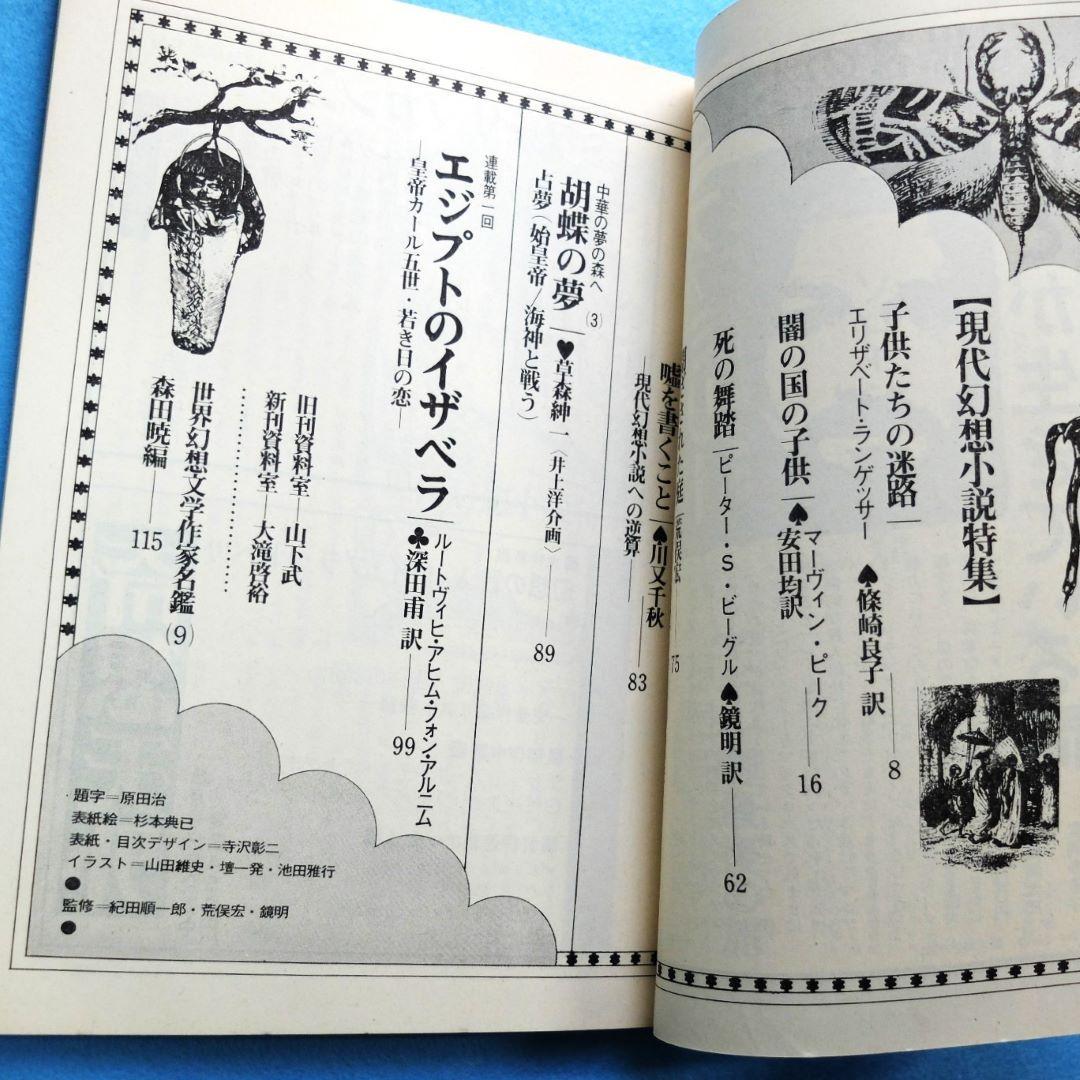 【現代幻想小説特集】
子供たちの迷路
エリザベート・ランゲッサー ♠篠崎良子 訳
8
闇の国の子供
マーヴィン・ピーク
♠安田均訳
16
死の舞踏
ピーター・S・ビーグル♠鏡明 訳
62
75
嘘を書くこと♠川又千秋
―現代幻想小説への逆算―
83
中華の夢の森へ(3)
胡蝶の夢♥草森紳一〈井上洋介画〉
占夢(始皇帝/海神と戦う)
89
連載第一回
エジプトのイザベラ
ルートヴィヒ・アヒム・フォン・アルニム
♣深田甫 訳
―皇帝カール五世・若き日の恋―
99
旧刊資料室―山下武
新刊資料室―大滝啓裕
世界幻想文学作家名鑑(9)
森田暁編
115
題字=原田治
表紙絵=杉本典巳
表紙・目次デザイン=寺沢彰二
イラスト=山田維史・壇一発・池田雅行
●
監修=紀田順一郎・荒俣宏・鏡明
●